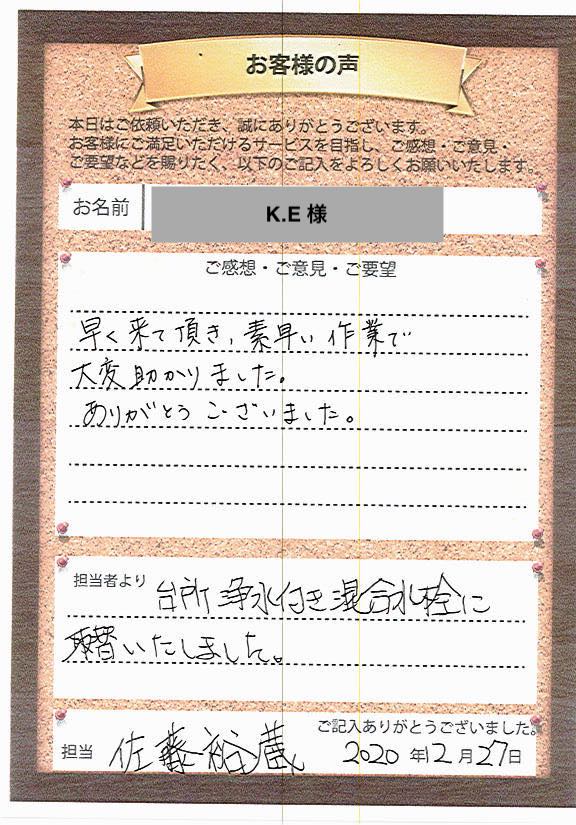 お客様の声
本日はご依頼いただき、誠にありがとうございます。
お客様にご満足いただけるサービスを目指し、ご感想・ご意見・
ご要望などを賜りたく、以下のご記入をよろしくお願いいたします。
お名前 K.E 様
ご感想・ご意見・ご要望
早く来て頂き、素早い作業で
大変助かりました。
ありがとうございました。
担当者より 台所浄水付き混合水栓に
取替いたしました。
ご記入ありがとうございました。
担当 佐藤裕蔵 2020 年12月27日